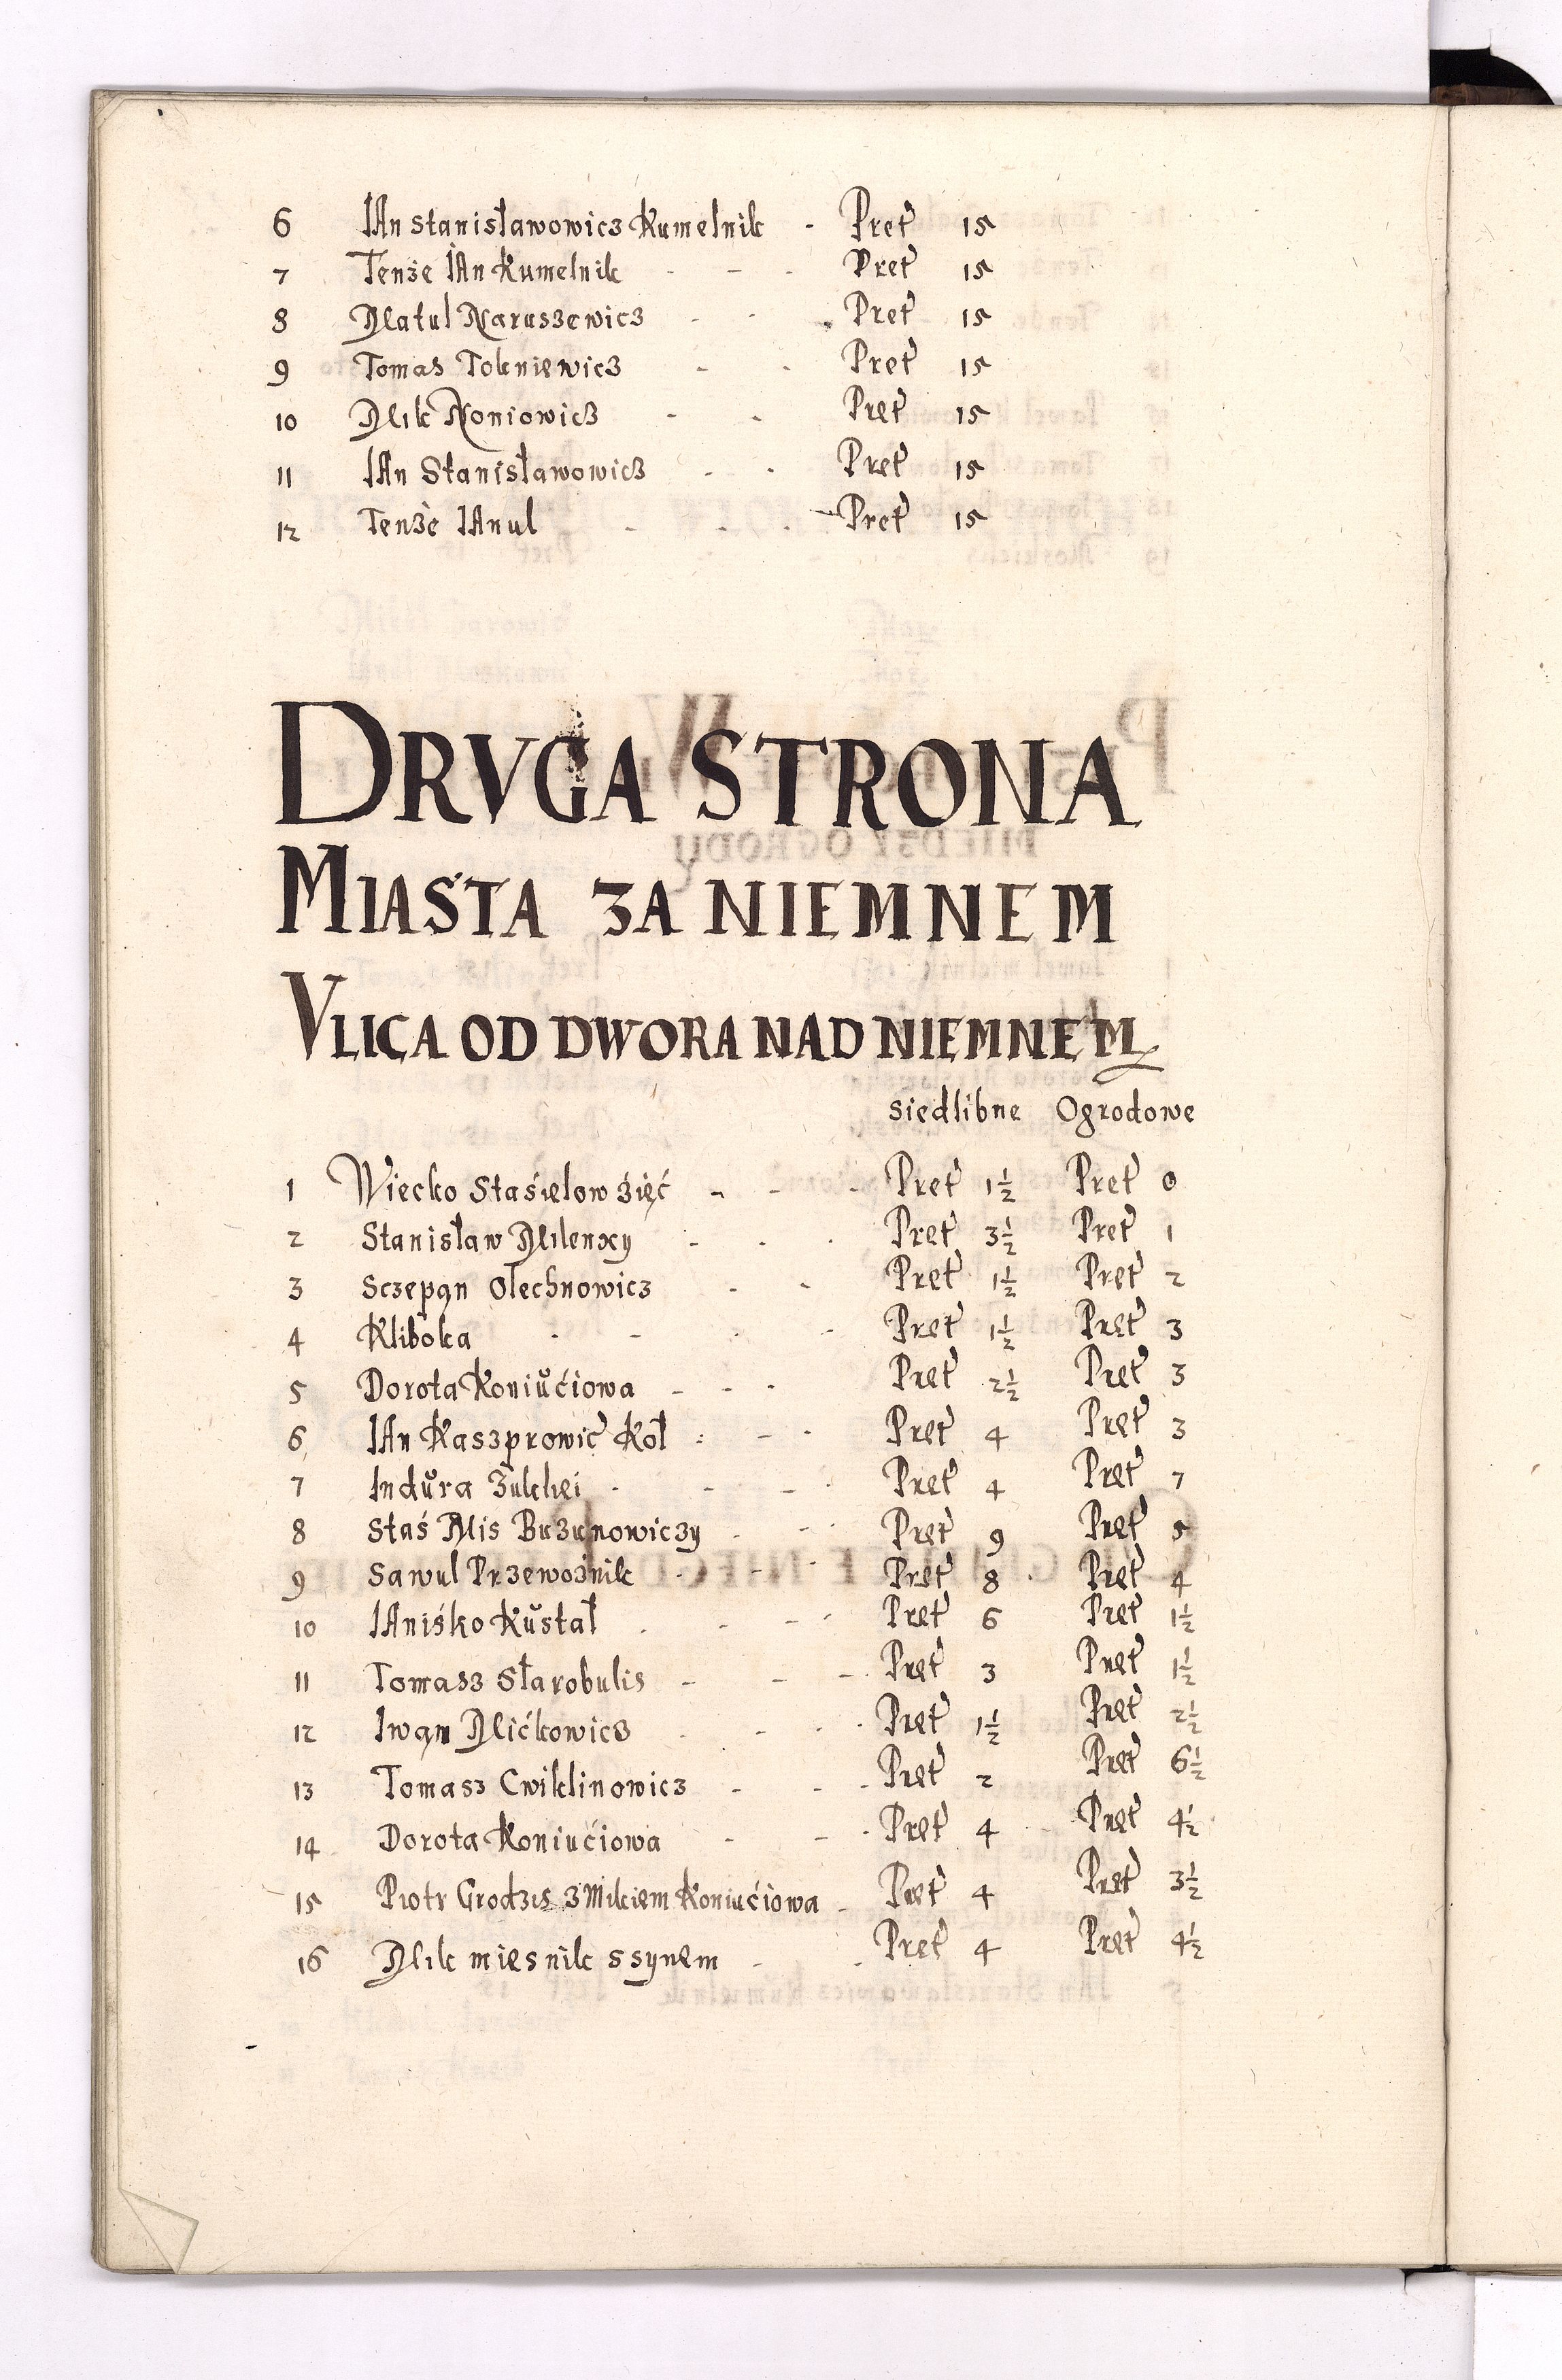 6 IAn Stanisławowicz Kumelnik - Pręt 15
7 Tenze IAn Kumelnik - - - Pręt 15
8 Matul Naruszewicz - - Pręt 15
9 Tomas Tokniewicz - - Pręt 15
10 Mik Noniowicz - - Pręt 15
11 IAn Stanisławowicz - - Pręt 15
12 Tenże IAnul - - - Pręt 15
DRVGA STRONA
MIASTA ZA NIEMNEM
VLICA OD DWORA NAD NIEMNEM
Siedlibne Ogrodowe
1 Wiecko Staśielow Zięć - - - Pręt 1½ Pręt 0
2 Stanisław Milenxy - - - Pręt 3½ Pręt 1
3 Sczepan Olechnowicz - - Pręt 1½ Pręt 2
4 Kliboka - - - - Pręt 1½ Pręt 3
5 Dorota Koniućiowa - - - Pręt 2½ Pręt 3
6 IAn Kaszprowic Koł - - - Pręt 4 Pręt 3
7 Indura Zulkiei - - - - Pręt 4 Pręt 7
8 Staś Mis Buzunowiczy - - - Pręt 9 Pręt 5
9 Sawul Przewoźnik - - - Pręt 8 Pręt 4
10 IAniśko Kustał - - - Pręt 6 Pręt 1½
11 Tomasz Starobulis - - - Pręt 3 Pręt 1½
12 Iwan Mićkowicz - - - Pręt 1½ Pręt 2½
13 Tomasz Cwiklinowicz - - - Pręt 2 Pręt 6½
14 Dorota Koniućiowa - - - Pręt 4 Pręt 4½
15 Piotr Grodzis z Mikiem Koniućiowa - Pręt 4 Pręt 3½
16 Mik mięsnik s synem - - Pręt 4 Pręt 4½